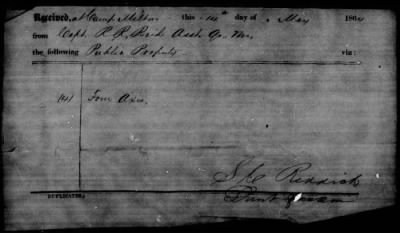 Received, at Camp Milton this 14th day of May 1864
from Capt. R. R. Asst Qr. Mr.
the following Public Property viz:
(4) Four Axes,
S. C. Reddick
DUPLICATES.